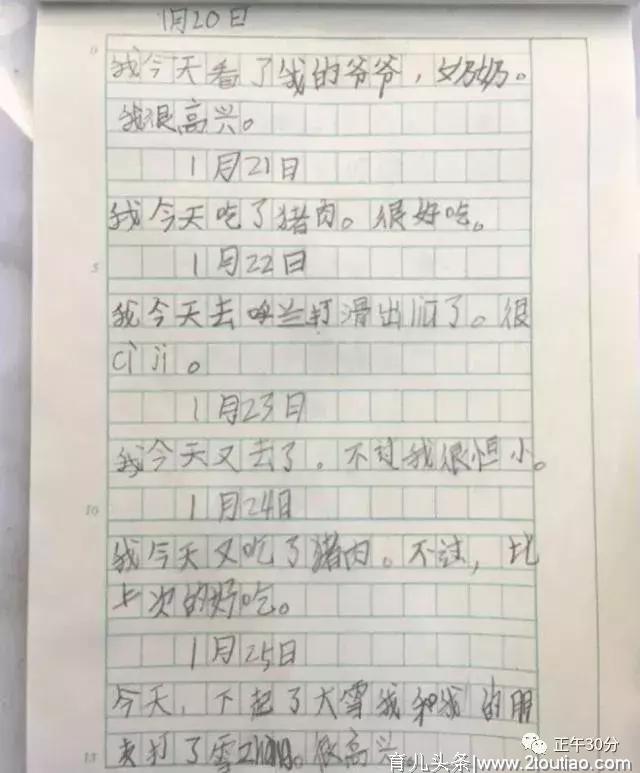 1月20日
我今天看了我的爷爷，奶奶。
我很高兴。
1月21日
我今天吃了猪肉。很好吃。
1月22日
我今天去呼兰打滑出liū了。很
cì jī。
1月23日
我今天又去了。不过我很恒小。
1月24日
我今天又吃了猪肉。不过，比
上次的好吃。
1月25日
今天，下起了大雪我和我的朋
友打了雪zhàng。很高兴
5
10
15
正午30分
育儿头条/www.21outiao.com